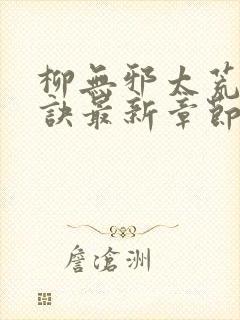 柳無邪太荒
訣最新章節
詹滄洲